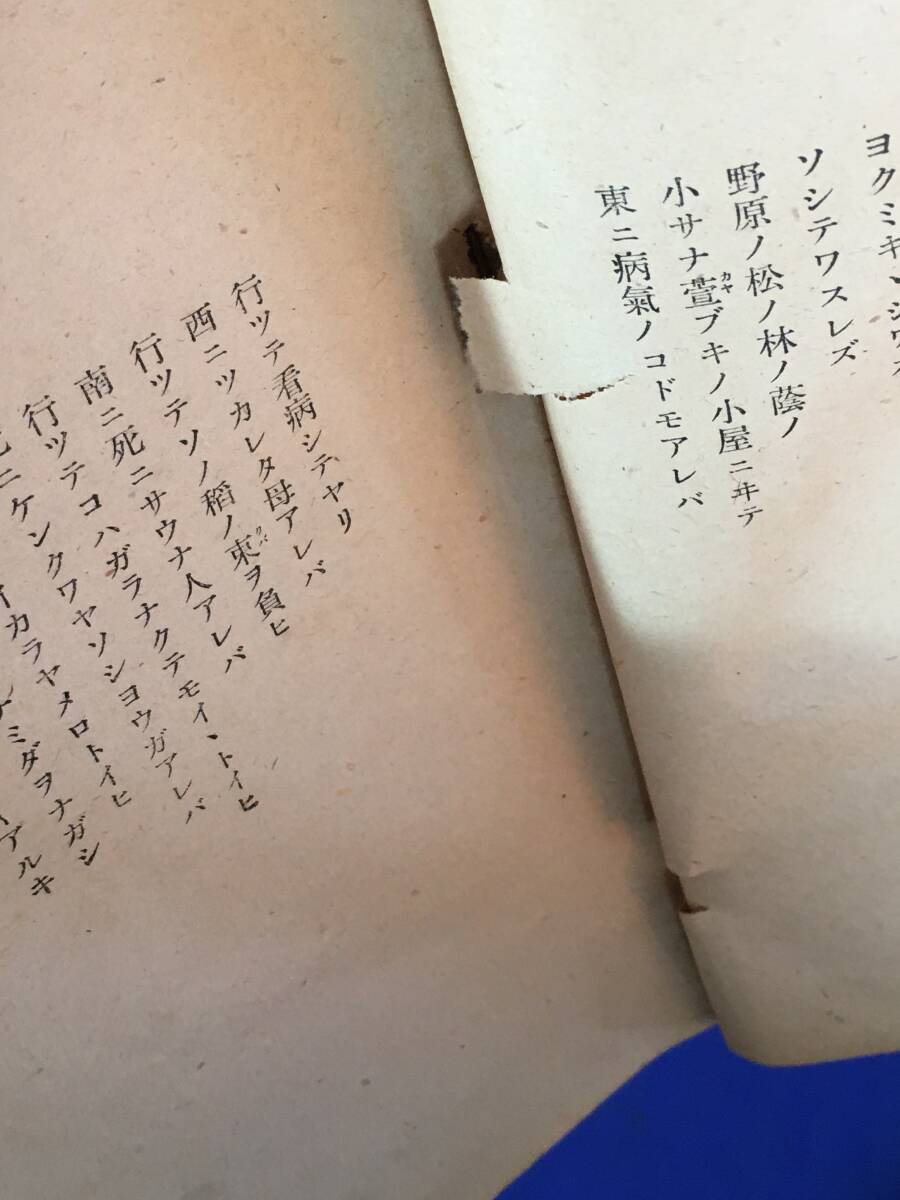 ヨクミキヽシワカ
ソシテワスレズ
野原ノ松ノ林ノ蔭ノ
小サナ萱ブキノ小屋ニヰテ
カヤ
東ニ病氣ノコドモアレバ
行ツテ看病シテヤリ
西ニツカレタ母アレバ
行ツテソノ稻ノ束ヲ負ヒ
南ニ死ニサウナ人アレバ
行ツテコハガラナクテモイヽトイヒ
ニケンクワヤソシヨウガアレバ
イカラヤメロトイヒ
ミダヲナガシ
アルキ